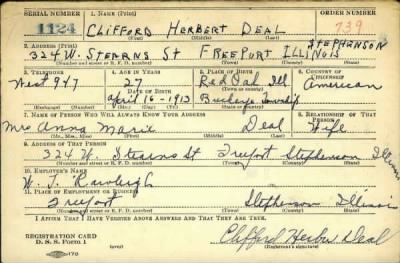 SERIAL NUMBER 1. NAME (Print) ORDER NUMBER
1124 CLIFFORD HERBERT DEAL 739
(First) (Middle) (Last)
2. ADDRESS (Print)
324 W. STEARNS ST FREEPORT ILLINOIS STEPHENSON
(Number and street or R. F. D. number) (Town) (County) (State)
3. TELEPHONE 4. AGE IN YEARS 5. PLACE OF BIRTH 6. COUNTRY OF CITIZENSHIP
West 947 27 Red Oak Ill.
DATE OF BIRTH American
April 16-1913 Buckeye Township
(Exchange) (Number) (Mo.) (Day) (Yr.) (Town or county) (State or country)
7. NAME OF PERSON WHO WILL ALWAYS KNOW YOUR ADDRESS 8. RELATIONSHIP OF THAT PERSON
Mrs Anna Marie Deal Wife
(Mr., Mrs., Miss) (First) (Middle) (Last)
9. ADDRESS OF THAT PERSON
324 W. Stearns St Freeport Stephenson Illinois
(Number and street or R. F. D. number) (Town) (County) (State)
10. EMPLOYER'S NAME
W. T. Rawleigh
11. PLACE OF EMPLOYMENT OR BUSINESS
Freeport Stephenson Illinois
(Number and street or R. F. D. number) (Town) (County) (State)
I AFFIRM THAT I HAVE VERIFIED ABOVE ANSWERS AND THAT THEY ARE TRUE.
REGISTRATION CARD
D. S. S. Form 1 Clifford Herber Deal
(Registrant's signature)